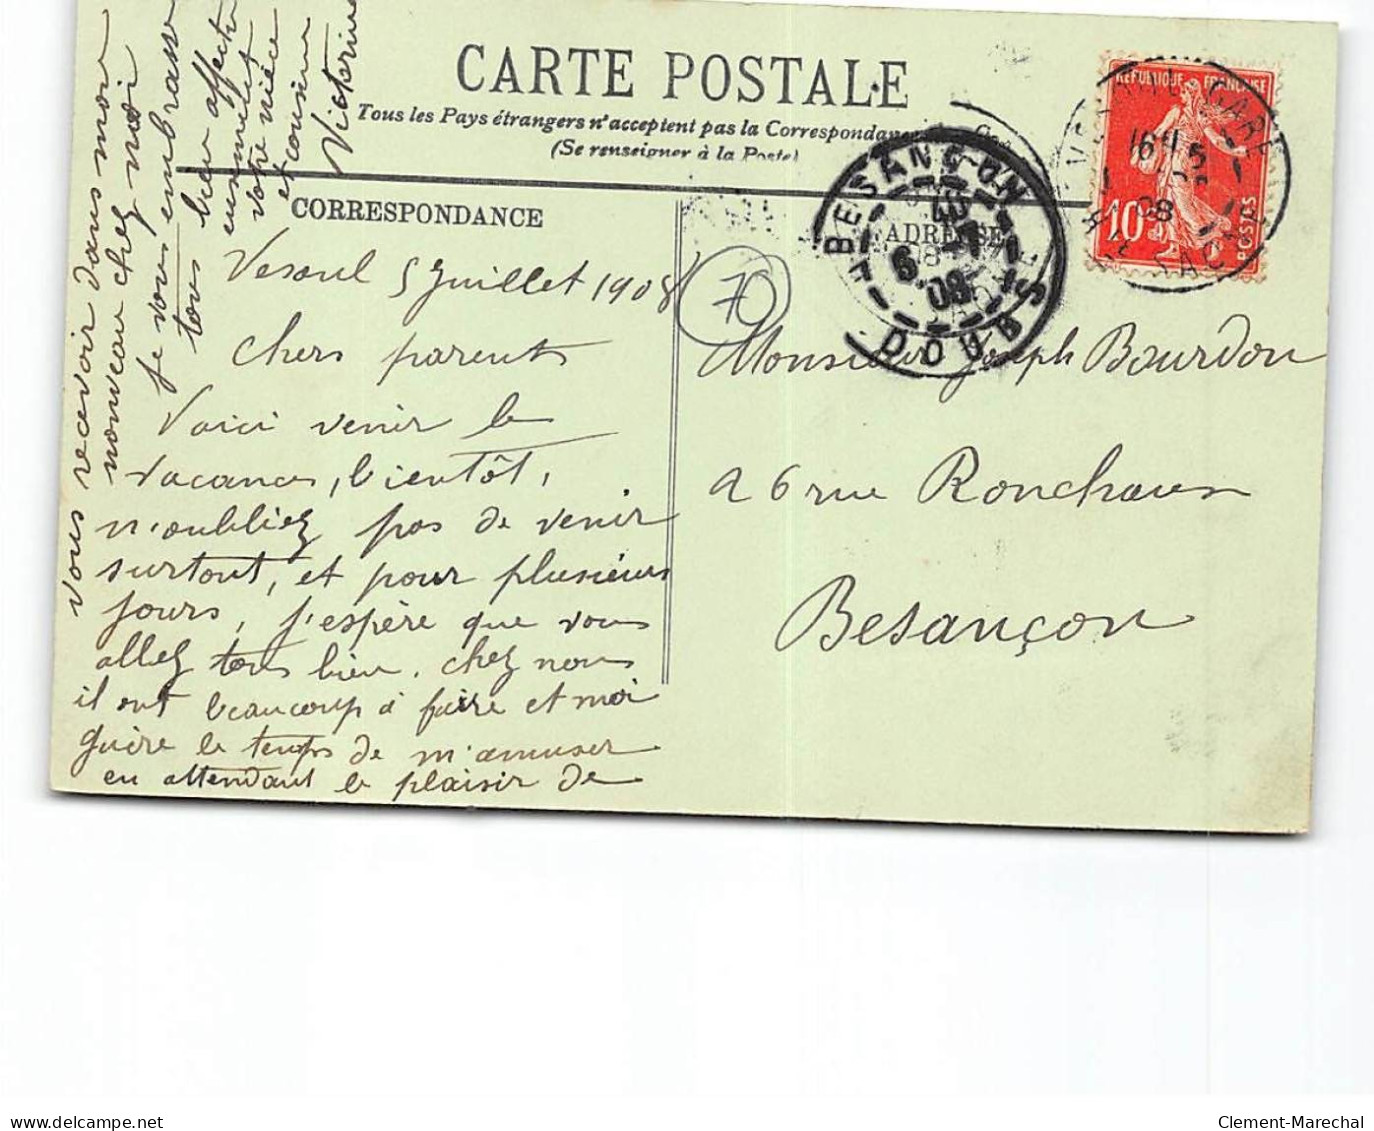 CARTE POSTALE
Tous les Pays étrangers n'acceptent pas la Correspondance
(Se renseigner à la Poste)
CORRESPONDANCE
ADRESSE
REPUBLIQUE FRANÇAISE
10
POSTES
VESOUL GARE
16
5
08
BESANÇON
6
08
DOUBS
70
Vesoul 5 Juillet 1908
Chers parents
Voici venir le
vacances, bientôt,
n'oubliez pas de venir
surtout, et pour plusieurs
jours, j'espère que vous
allez tous bien. chez nous
il ont beaucoup à faire et moi
guère le temps de m'amuser
en attendant le plaisir de
vous recevoir dans mon
nouveau chez moi
je vous embrasse
tous bien affect
votre nièce
et cousine
Victorine
Monsieur Joseph Bourdon
26 rue Ronchaux
Besançon
delcampe.net
Clement-Marechal